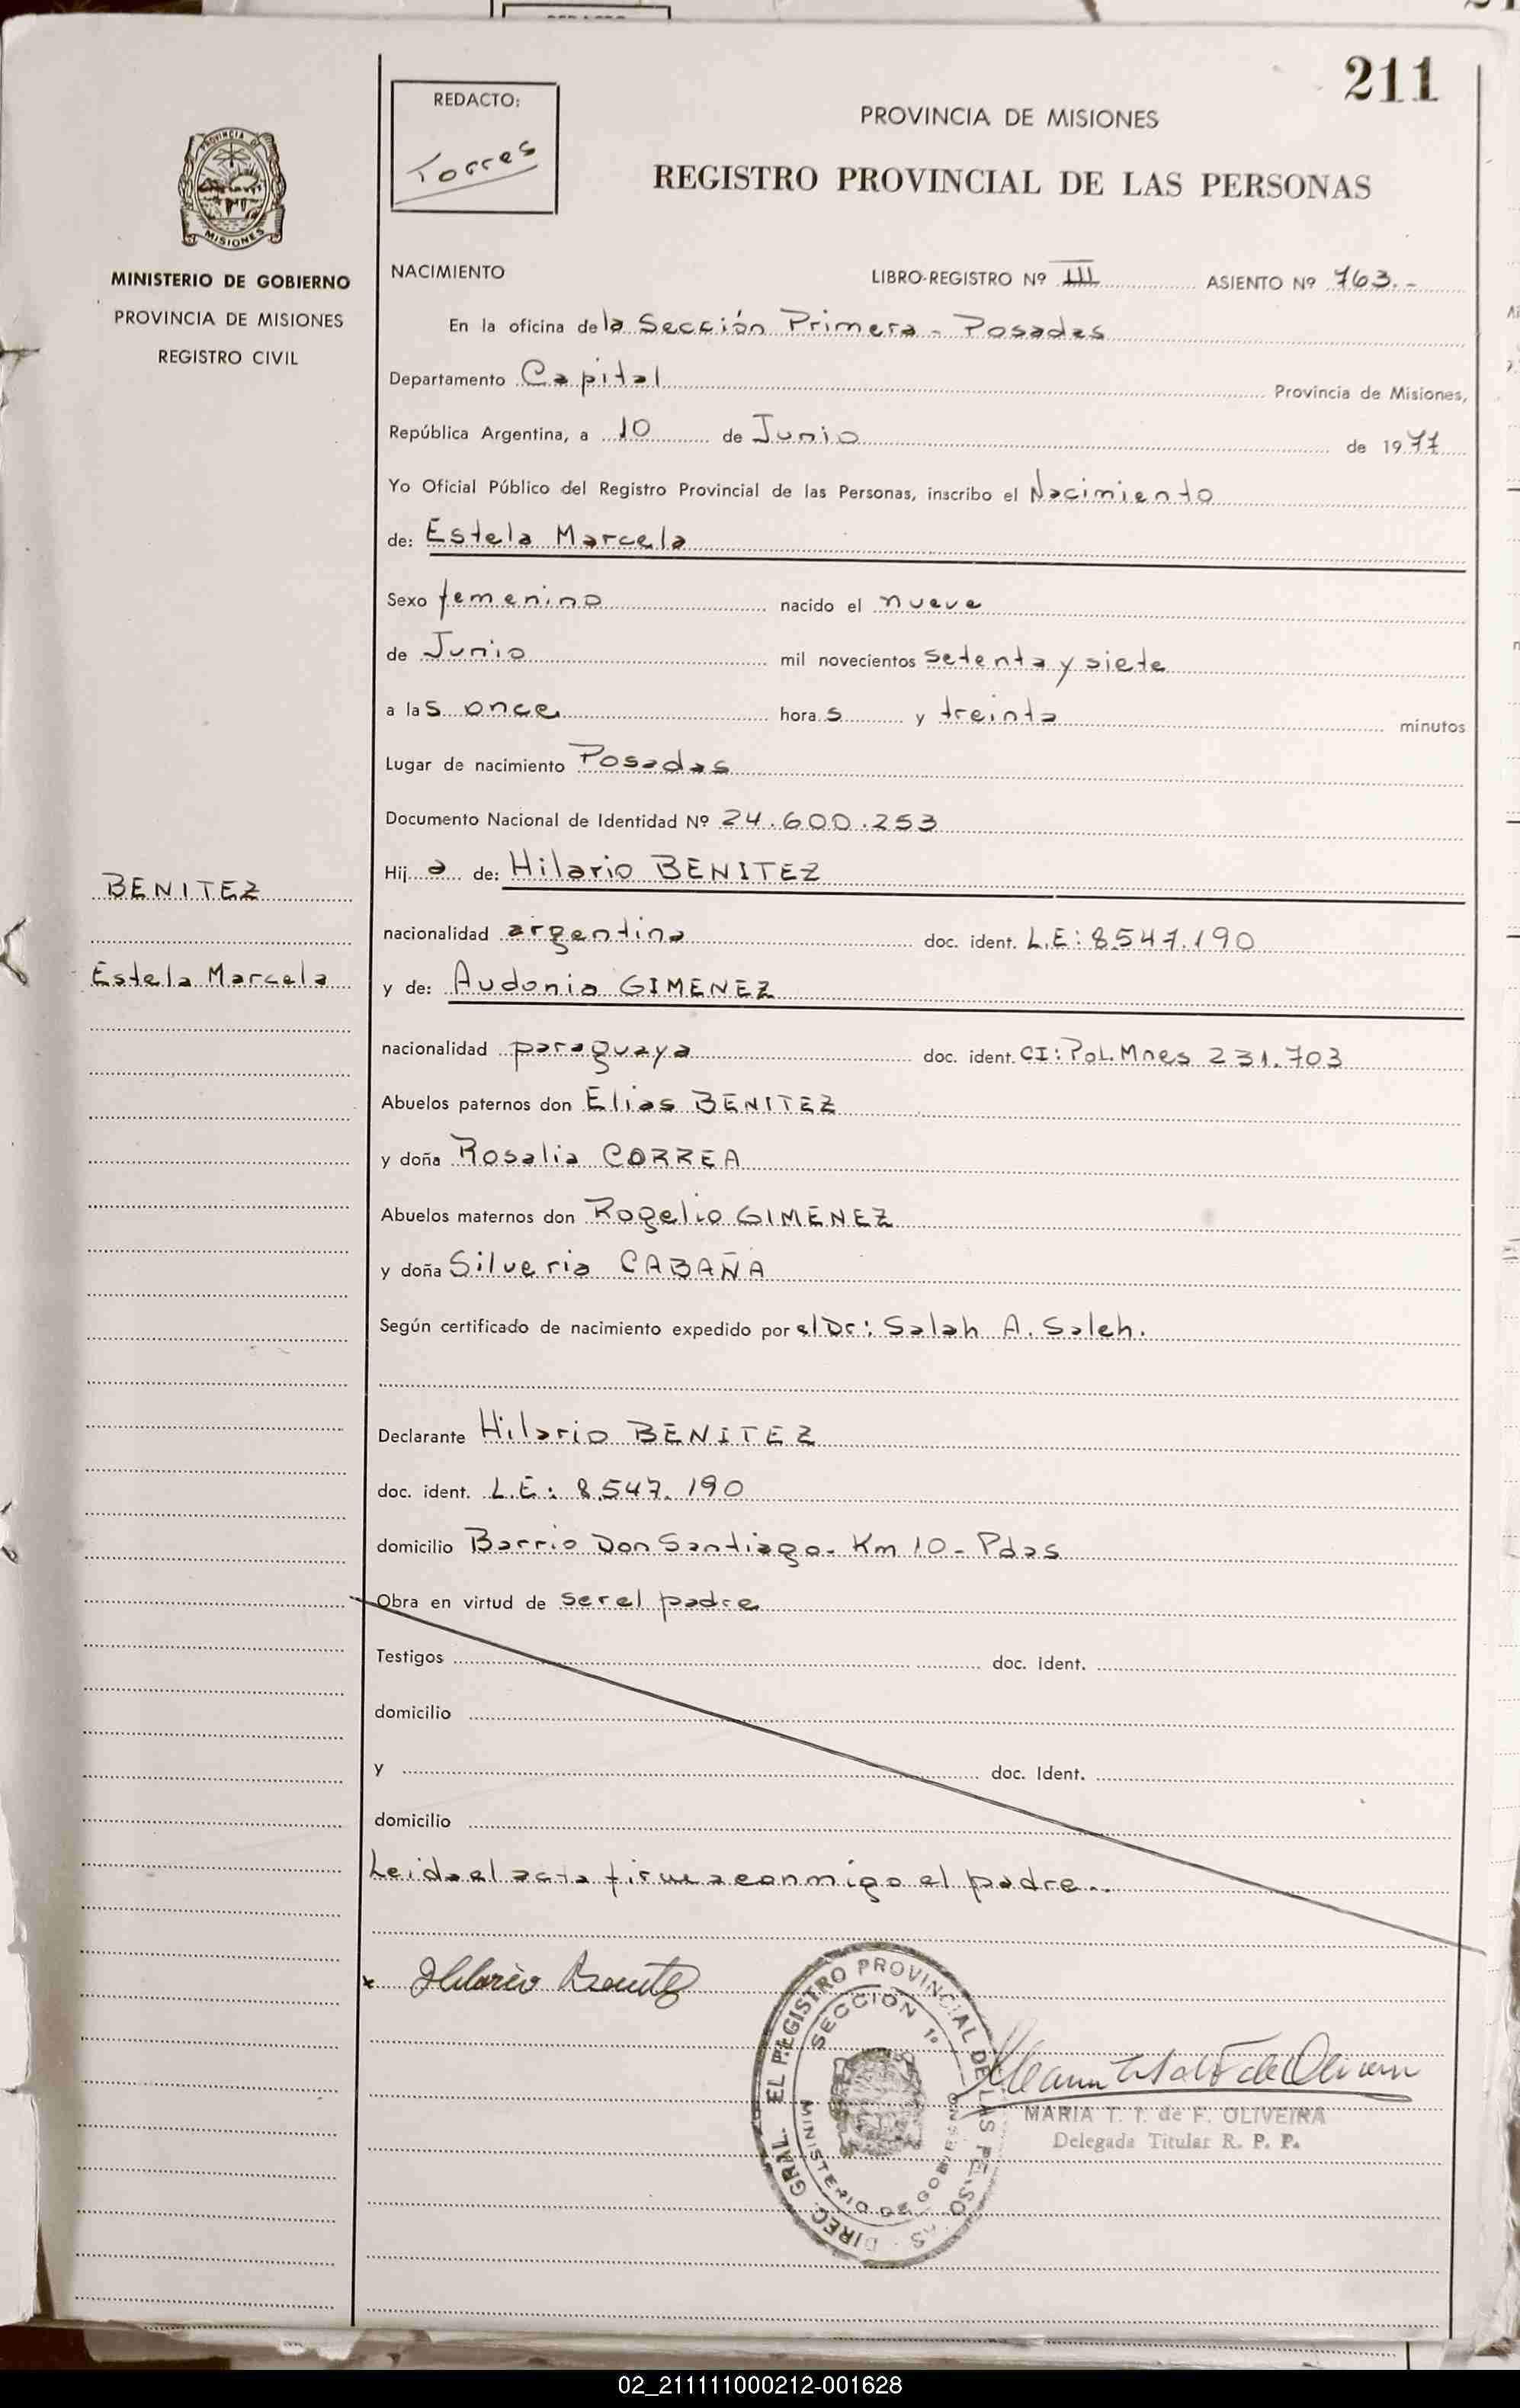 211
REDACTO:
Torres
PROVINCIA DE MISIONES
REGISTRO PROVINCIAL DE LAS PERSONAS
PROVINCIA DE
MISIONES
MINISTERIO DE GOBIERNO
PROVINCIA DE MISIONES
REGISTRO CIVIL
NACIMIENTO LIBRO-REGISTRO Nº III ASIENTO Nº 763.-
En la oficina de la Sección Primera - Posadas
Departamento Capital Provincia de Misiones,
República Argentina, a 10 de Junio de 1977
Yo Oficial Público del Registro Provincial de las Personas, inscribo el Nacimiento
de: Estela Marcela
Sexo femenino nacido el nueve
de Junio mil novecientos setenta y siete
a las once horas y treinta minutos
Lugar de nacimiento Posadas
Documento Nacional de Identidad Nº 24.600.253
BENITEZ
Estela Marcela
Hija de: Hilario BENITEZ
nacionalidad argentina doc. ident. L.E: 8.547.190
y de: Audonia GIMENEZ
nacionalidad paraguaya doc. ident. CI: Pol. Mnes 231.703
Abuelos paternos don Elias BENITEZ
y doña Rosalia CORREA
Abuelos maternos don Rogelio GIMENEZ
y doña Silveria CABAÑA
Según certificado de nacimiento expedido por el Dr: Salah A. Saleh.
Declarante Hilario BENITEZ
doc. ident. L.E: 8.547.190
domicilio Barrio Don Santiago - Km 10 - Pdas
Obra en virtud de ser el padre
Testigos doc. Ident.
domicilio
y doc. Ident.
domicilio
Leida el acta firma conmigo el padre.-
x Hilario Benitez
DIREC. GRAL. EL REGISTRO PROVINCIAL DE LAS PERSONAS
SECCION 1º
MINISTERIO DE GOBIERNO
MARIA T. T. de F. OLIVEIRA
Delegada Titular R. P. P.
02_211111000212-001628